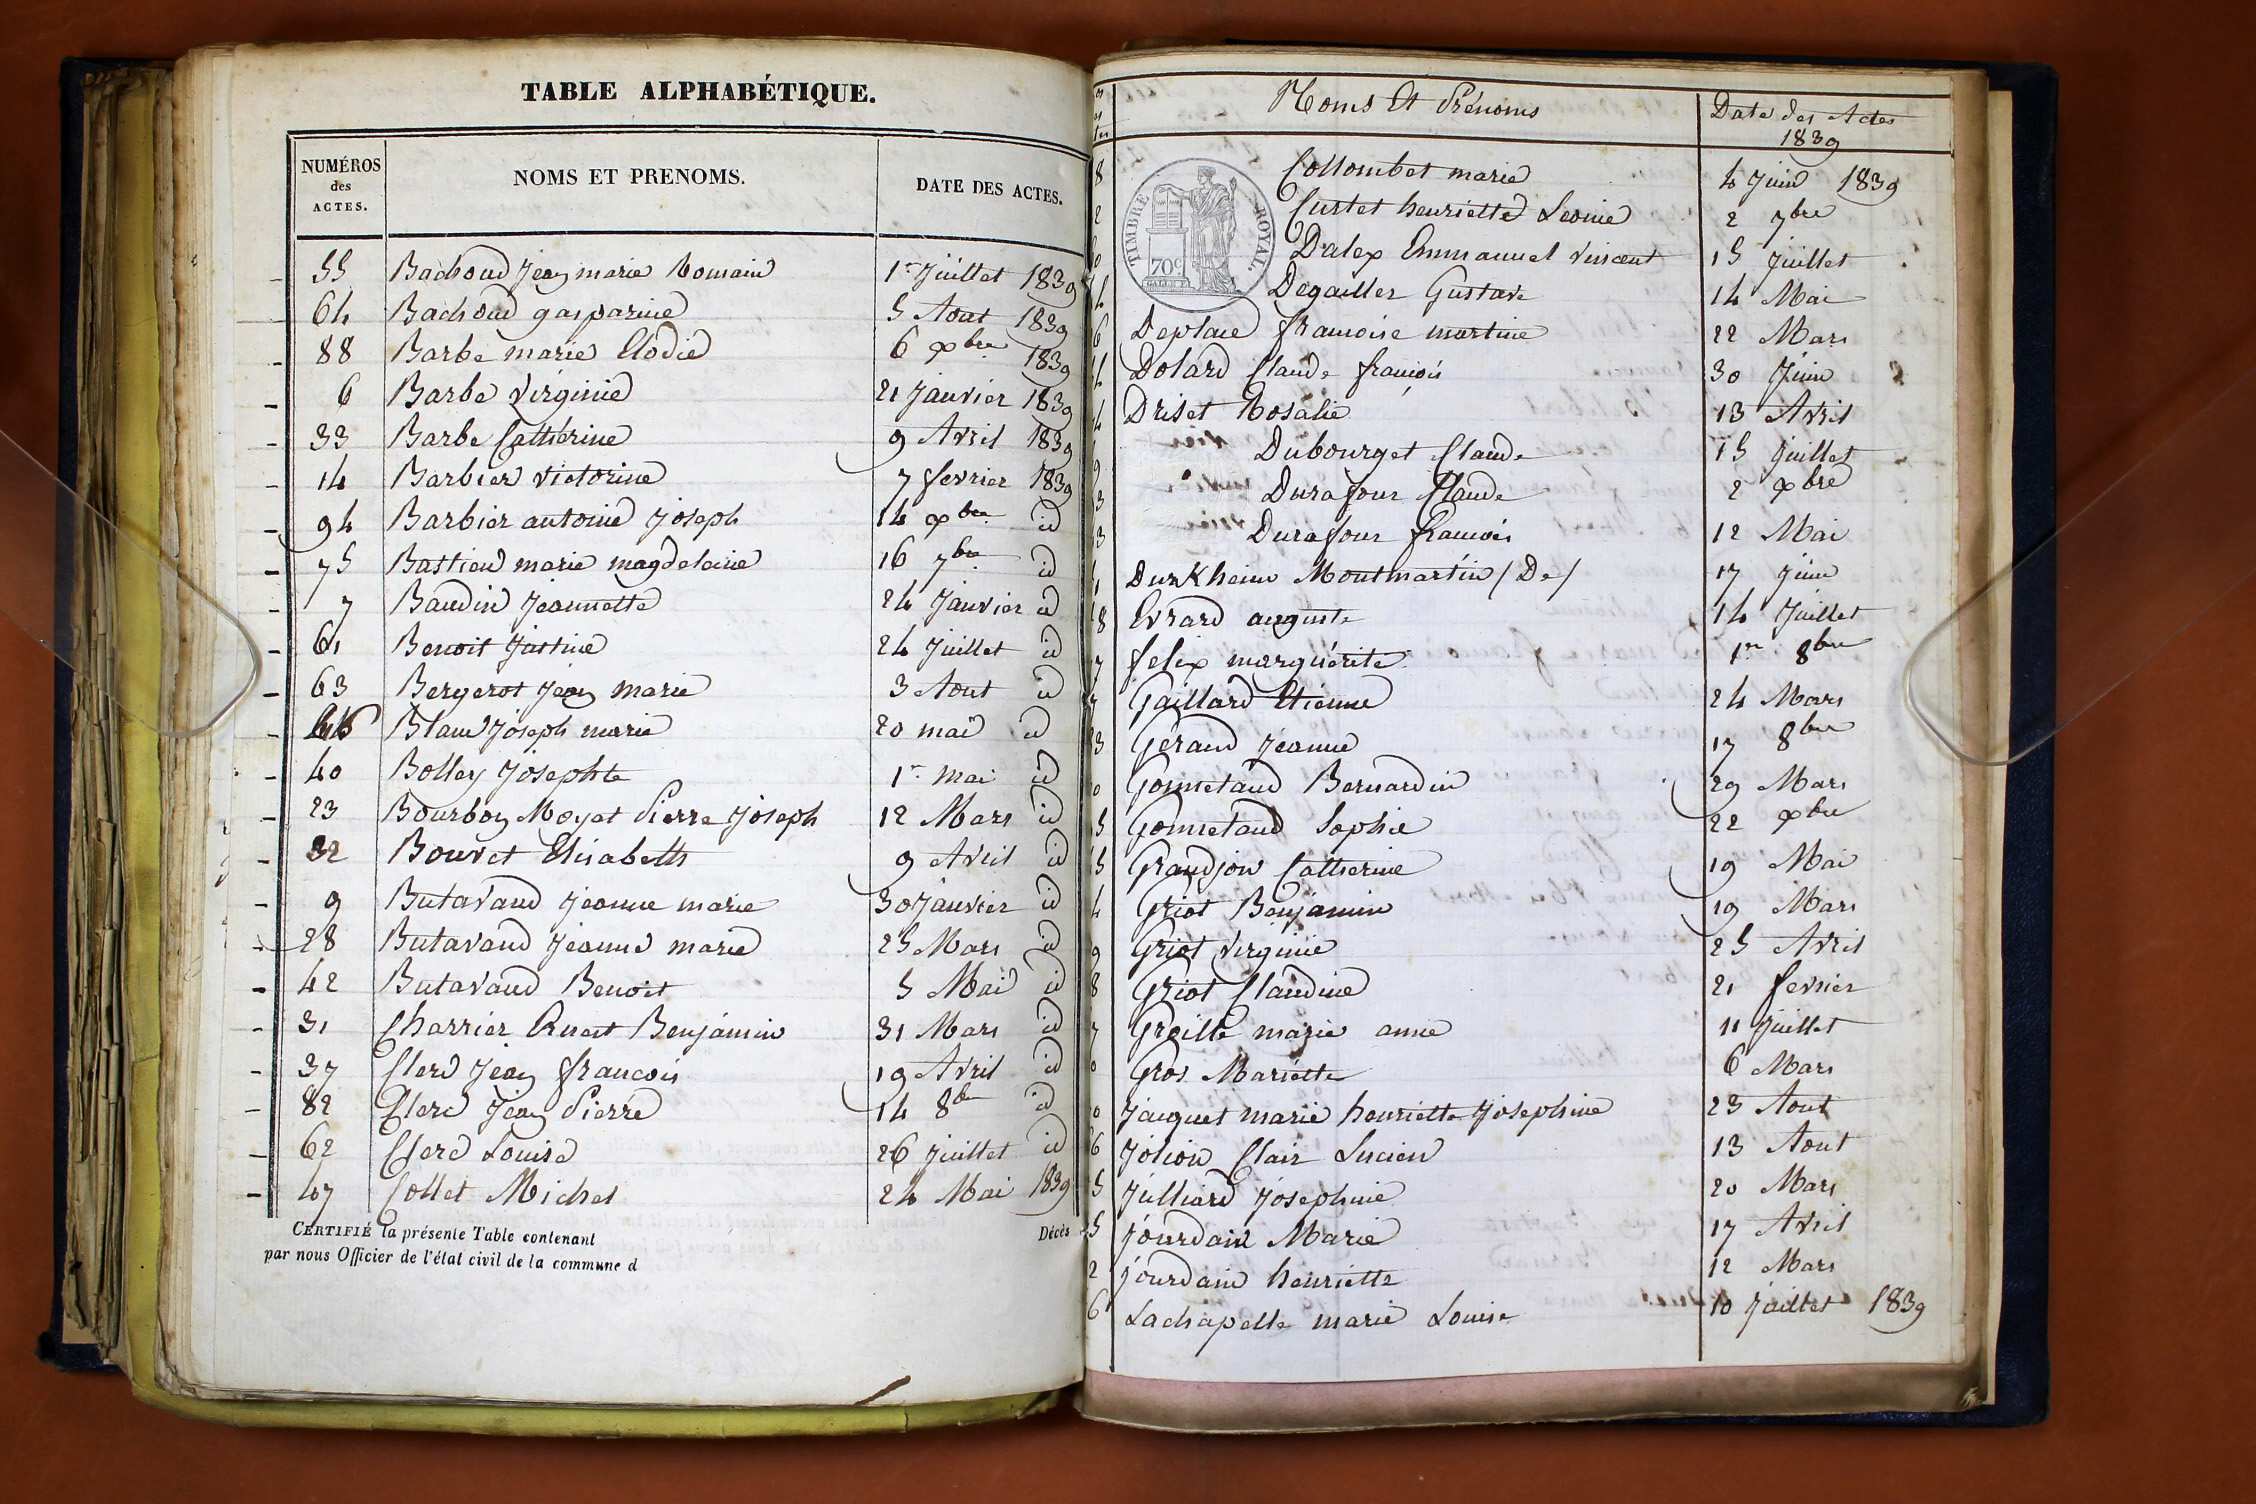 TABLE ALPHABÉTIQUE.
NUMÉROS des ACTES. NOMS ET PRENOMS. DATE DES ACTES.
55 Bachoud Jean marie Romain 1er Juillet 1839
64 Bachoud gasparine 5 Aout 1839
88 Barbe marie Elodie 6 xbre 1839
6 Barbe Virginie 21 Janvier 1839
33 Barbe Catherine 9 Avril 1839
14 Barbier victorine 7 fevrier 1839
94 Barbier antoine joseph 14 xbre id
75 Bastien marie magdelaine 16 7bre id
7 Baudin Jeannette 24 Janvier id
61 Benoit Justine 24 Juillet id
63 Bergerot Jean marie 3 Aout id
Blanc Joseph marie 20 mai id
40 Bolley Josephte 1er mai id
23 Bourbon Moyat Pierre Joseph 12 Mars id
32 Bouvet Elisabeth 9 Avril id
9 Butavand Jeanne marie 30 Janvier id
28 Butavand Jeanne marie 25 Mars id
42 Butavand Benoit 5 Mai id
31 Charrier Ernest Benjamin 31 Mars id
37 Clerc Jean francois 19 Avril id
82 Clerc Jean Pierre 14 8bre id
62 Clerc Louise 26 Juillet id
47 Collet Michel 24 Mai 1839
CERTIFIÉ la présente Table contenant Décès
par nous Officier de l'état civil de la commune d
Noms Et Prénoms Date des Actes
1839
TIMBRE ROYAL.
70c
8 Collombet marie 4 Juin 1839
2 Curtet henriette Leonie 2 7bre
Dalex Emmanuel vincent 15 Juillet
4 Degailler Gustave 14 Mai
6 Deplace francoise martine 22 Mars
4 Dolard Claude francois 30 Juin
4 Driset Rosalie 13 Avril
9 Dubourget Claude 15 Juillet
3 Durafour Claude 2 xbre
3 Durafour francois 12 Mai
1 Durkheim Montmartin (De) 17 Juin
8 Evrard auguste 14 Juillet
7 felix marguérite 1er 8bre
7 Gaillard Etienne 24 Mars
3 Géraud Jeanne 17 8bre
0 Gonnetand Bernardin 29 Mars
5 Gonnetand Sophie 22 xbre
5 Grandjon Catherine 19 Mai
4 Griot Benjamin 19 Mars
9 Griot Virginie 25 Avril
8 Griot Claudine 21 fevrier
7 Greille marie anne 11 Juillet
0 Gros Mariette 6 Mars
0 Jacquet marie henriette Josephine 23 Aout
6 Jolion Clair Lucien 13 Aout
5 Julliard Josephine 20 Mars
5 Jourdain Marie 17 Avril
2 jourdain henriette 12 Mars
6 Lachapelle marie Louise 10 Juillet 1839